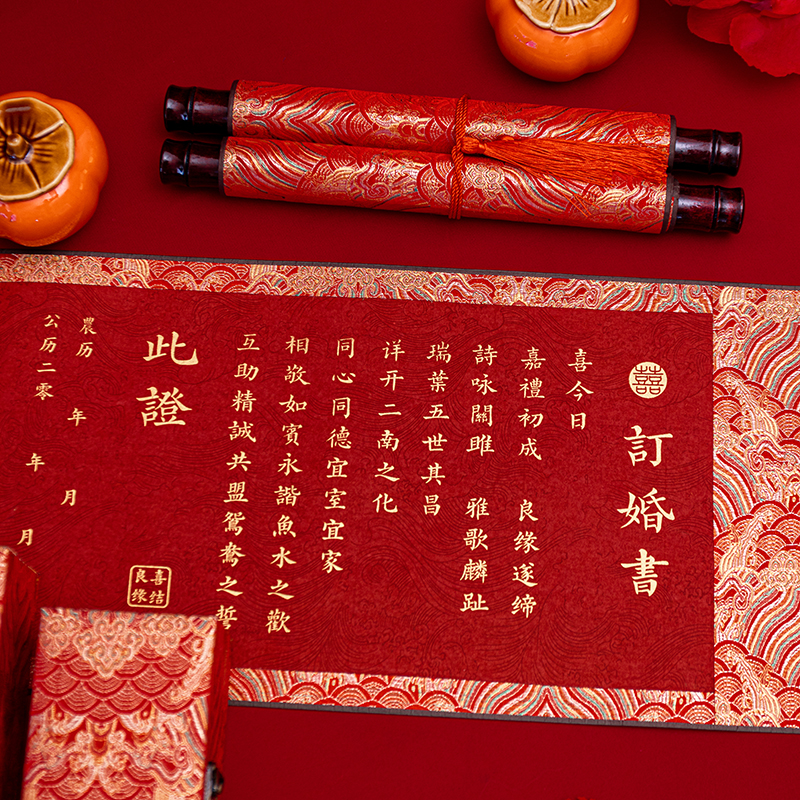 囍
訂婚書
喜今日
嘉禮初成 良缘遂缔
詩咏關雎 雅歌麟趾
瑞葉五世其昌
详开二南之化
同心同德宜室宜家
相敬如賓永諧魚水之歡
互助精誠共盟鴛鴦之誓
此證
喜结
良缘
農历 年 月
公历二零 年 月